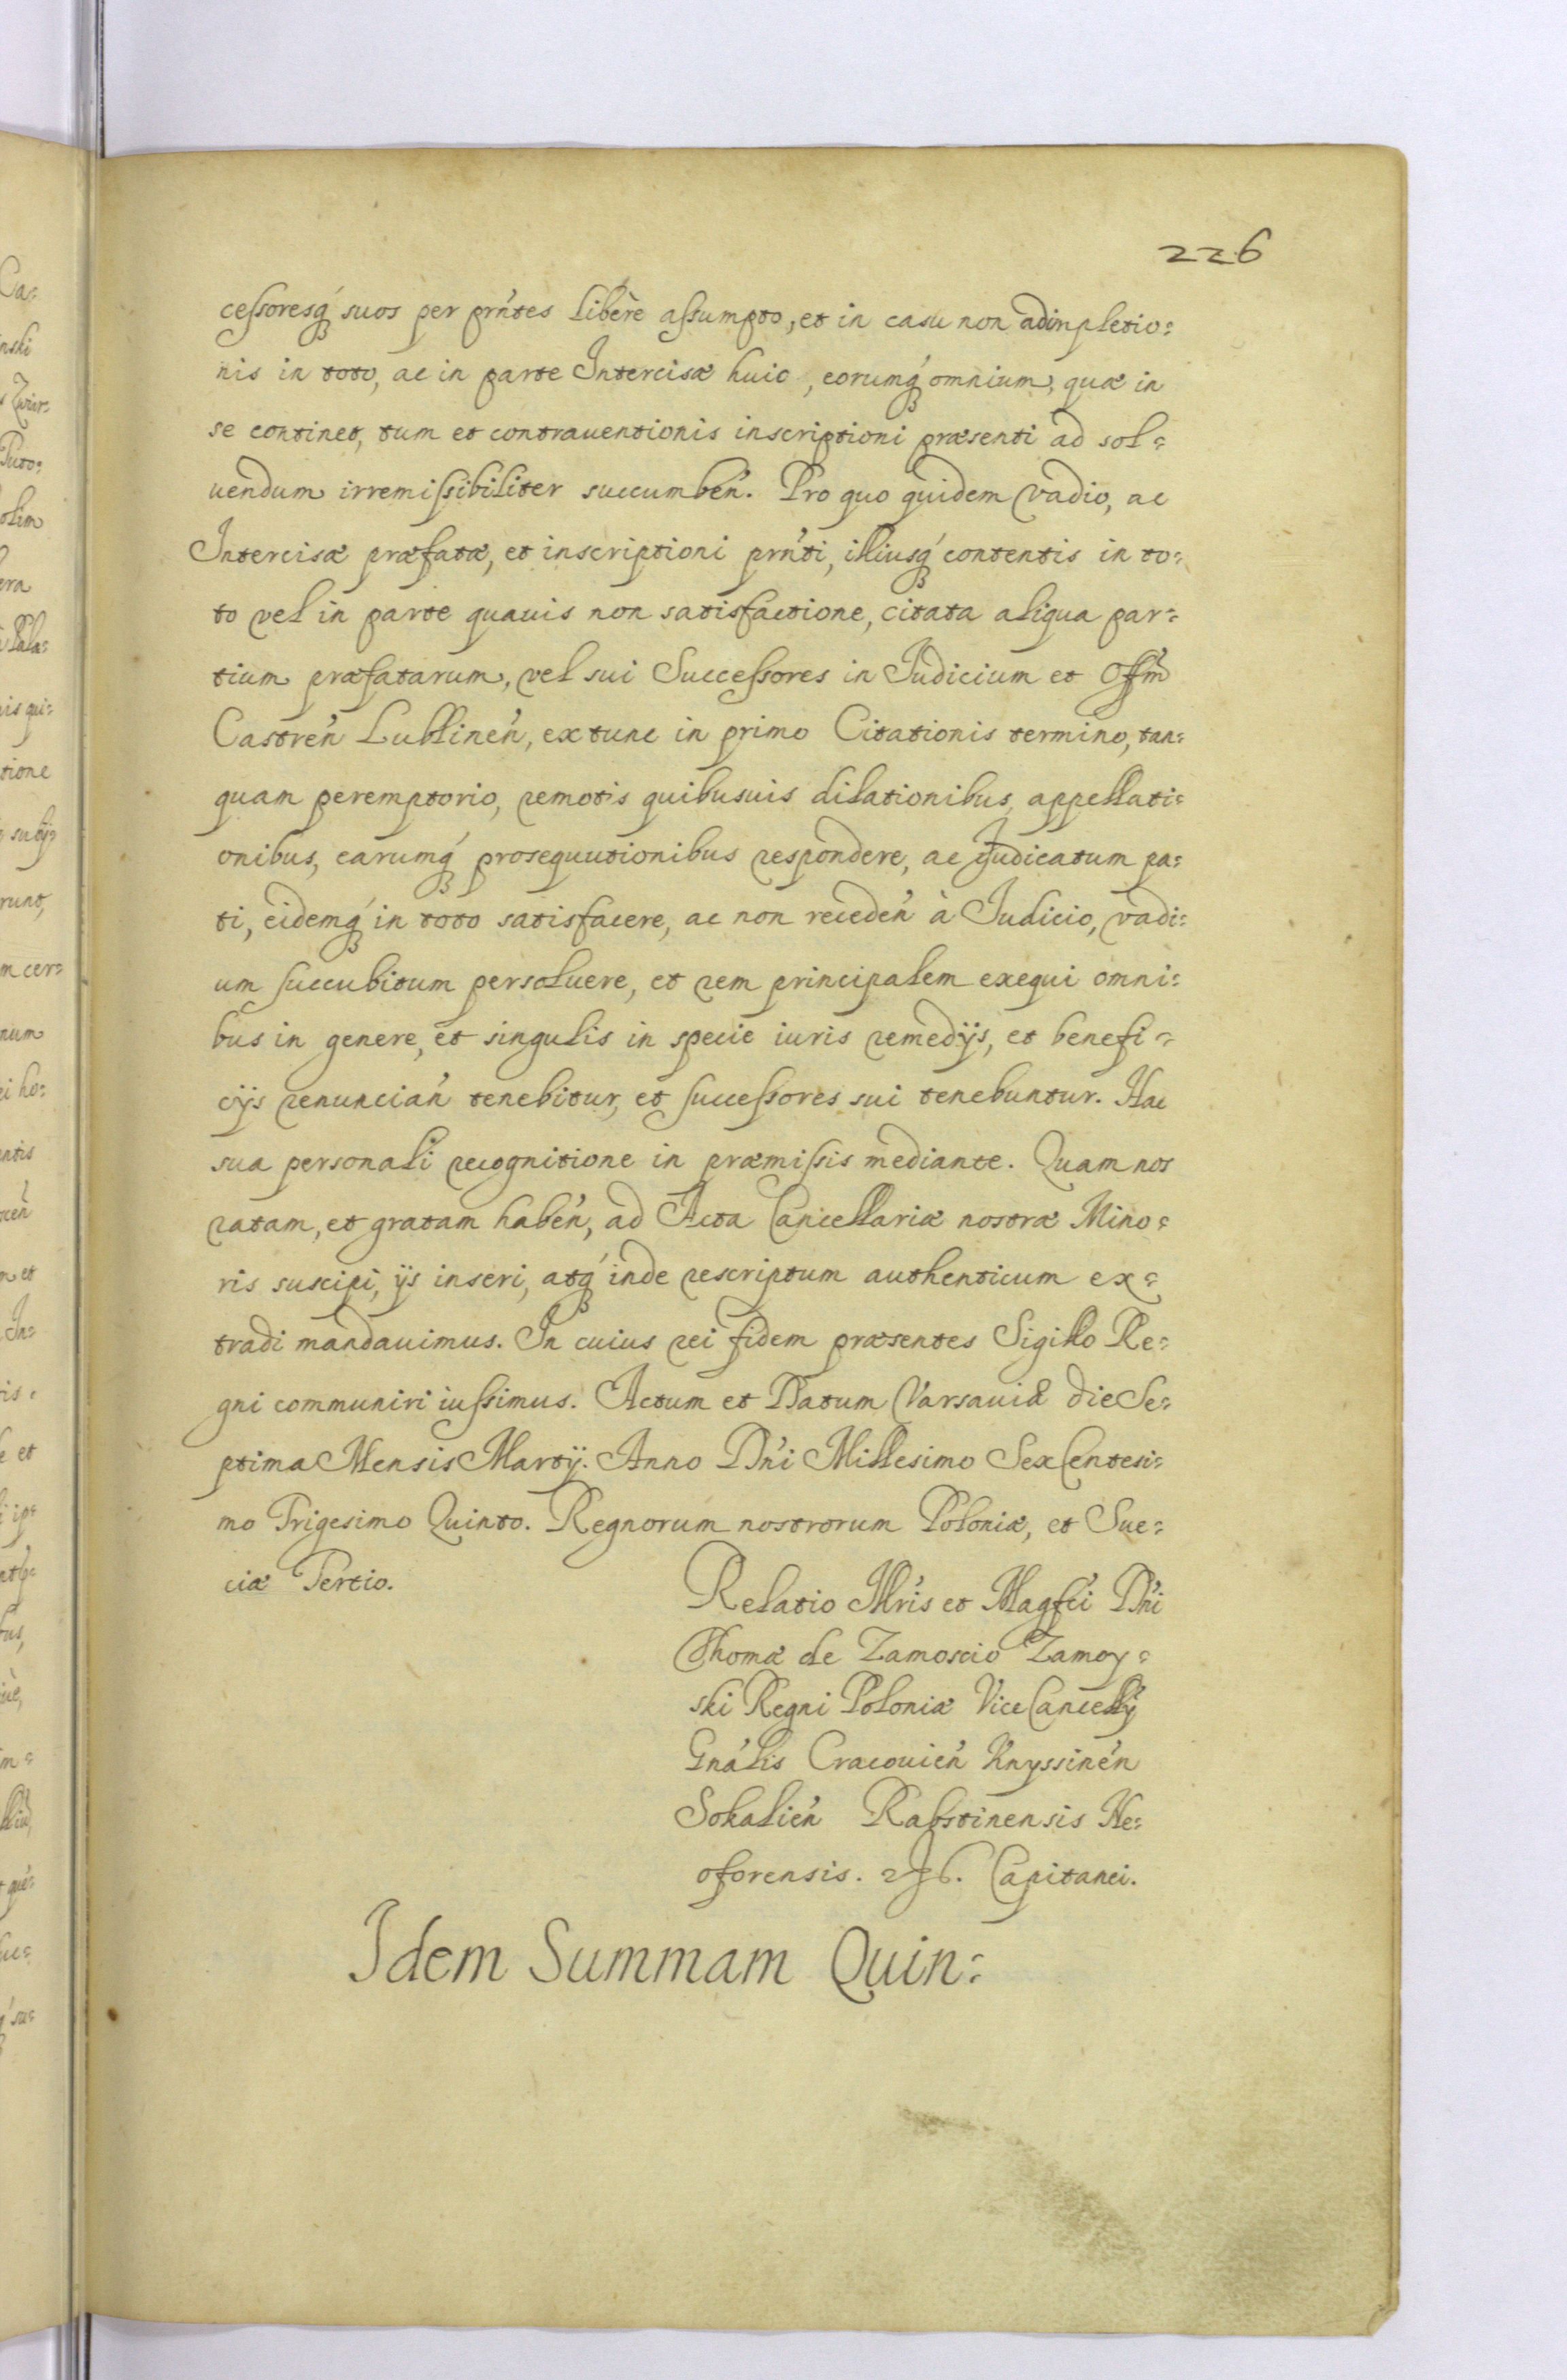 226
cessoresq́ suos per prńtes liberè assumpto, et in casu non adimpletio=
nis in toto, ac in parte Intercisæ huic, eorumq́ omnium, quæ in
se continet, tum et contrauentionis inscriptioni præsenti ad sol=
uendum irremissibiliter succumbeń. Pro quo quidem vadio, ac
Intercisæ præfatæ, et inscriptioni prńti, illiusq́ contentis in to=
to vel in parte quauis non satisfactione, citata aliqua par=
tium præfatarum, vel sui Successores in Judicium et Offm̃
Castreń Lublineń, ex tunc in primo Citationis termino, tan=
quam peremptorio, remotis quibusuis dilationibus, appellati=
onibus, earumq́ prosequutionibus respondere, ac Judicatum pa=
ti, eidemq́ in toto satisfacere, ac non recedeń à Iudicio, vadi=
um succubitum persoluere, et rem principalem exequi omni=
bus in genere, et singulis in specie iuris remedijs, et benefi=
cijs renunciań tenebitur, et successores sui tenebuntur. Hac
sua personali recognitione in præmissis mediante. Quam nos
ratam, et gratam habeń, ad Acta Cancellariæ nostræ Mino=
ris suscipi, ijs inseri, atq́ inde rescriptum authenticum ex=
tradi mandauimus. In cuius rei fidem præsentes Sigillo Re=
gni communiri iussimus. Actum et Datum Varsauiæ die Se=
ptima Mensis Martij. Anno Dńi Millesimo SexCentesi=
mo Trigesimo Quinto. Regnorum nostrorum Poloniæ, et Sue=
ciæ Tertio.
Relatio Illŕis et Magfći Dńi
Thomæ de Zamoscio Zamoy=
ski Regni Poloniæ ViceCancellÿ
Gnális Cracouień Knyssineń
Sokalień Rabstinensis Ne=
oforensis. Capitanei.
Idem Summam Quin=